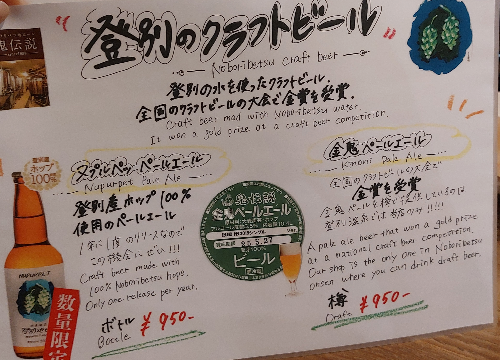 鬼伝説
"登別のクラフトビール"
Noboribetsu Craft beer
登別の水を使ったクラフトビール.
全国のクラフトビールの大会で金賞を受賞
Craft beer made with Noboribetsu water.
It won a gold prize at a craft beer competition.
ヌプルペッ ペールエール
Nupurpet Pale Ale
登別産ホップ100%
使用のペールエール
1年に1度のリリースなので
この機会にぜひ!!!
Craft beer made with
100% Noboribetsu hops.
Only one release per year.
ボトル ¥950-
Bottle
登別産
ホップ
100%
数量限定
鬼伝説
金鬼ペールエール
ビール
金鬼ペールエール
Kinoni Pale Ale
全国のクラフトビールの大会で
金賞を受賞
金鬼ペールを樽で提供しているのは
登別温泉では当店のみ!!!!
A pale ale beer that won a gold prize
at a national craft beer competition.
Our shop is the only one in Noboribetsu
onsen where you can drink draft beer.
樽 ¥950-
Draft